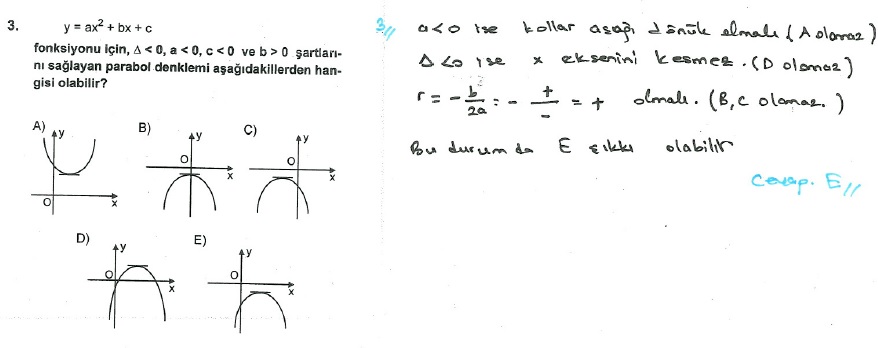 3.
y = ax² + bx + c
fonksiyonu için, Δ < 0, a < 0, c < 0 ve b > 0 şartları-
nı sağlayan parabol denklemi aşağıdakilerden han-
gisi olabilir?
A)
y
O
x
B)
y
O
x
C)
y
O
x
D)
y
O
x
E)
y
O
O
x
3//
a<0 ise kollar aşağı dönük olmalı (A olamaz)
Δ<0 ise x eksenini kesmez. (D olamaz)
r = - b/2a = - +/- = + olmalı. (B, C olamaz.)
Bu durumda E şıkkı olabilir
Cevap. E//